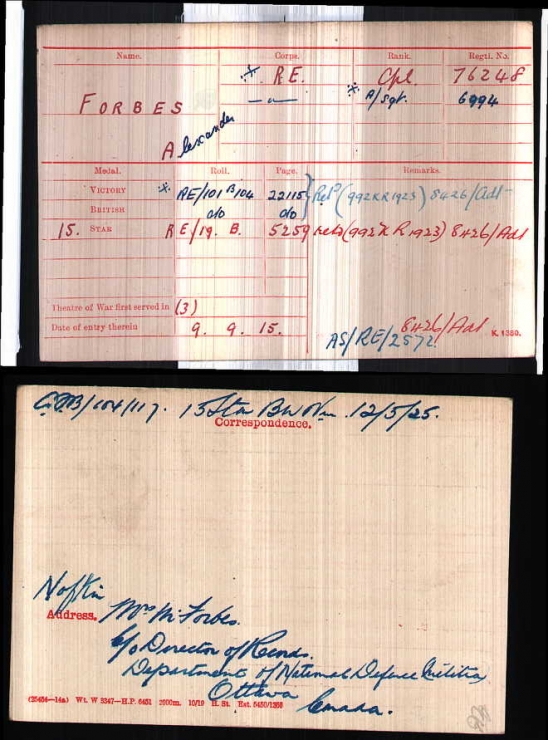 Name. Corps. Rank. Regtl. No.
FORBES * R.E. Cpl 76248
—"— * A/Sgt. 6994
Alexander
Medal. Roll. Page. Remarks.
VICTORY * RE/101 B 104 22115 Retd (992 KR 1923) 8426/Adt
BRITISH do do
15. STAR RE/19. B. 5259 retd (992 KR 1923) 8426/Adt
Theatre of War first served in (3)
Date of entry therein 9. 9. 15. 8426/Adt
AS/RE/2572 K. 1380.
/104/117. 15 Star BW Vm. 12/5/25.
Correspondence.
Address. Mrs M. Forbes.
C/o Director of Records.
Department of National Defence Militia,
Ottawa
Canada.
(25434—14a) Wt. W 5347—H.P. 6451 2000m. 10/19 H. St.